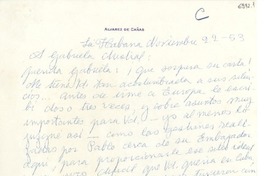 C
ALVAREZ DE CAÑAS
La Habana Noviembre 22-53
A Gabriela Mistral:
Querida Gabriela: ¡que sorpresa su carta!
Me tiene Ud. tan acostumbrada a sus silen-
cios. Antes de irme a Europa le escri-
bí dos o tres veces, y sobre asuntos muy
importantes para Ud. — yo al menos lo
juzgué así — como las gestiones reali-
zadas por Pablo cerca de su Embajador
aquí para proporcionarle
que Ud. quería en Cuba